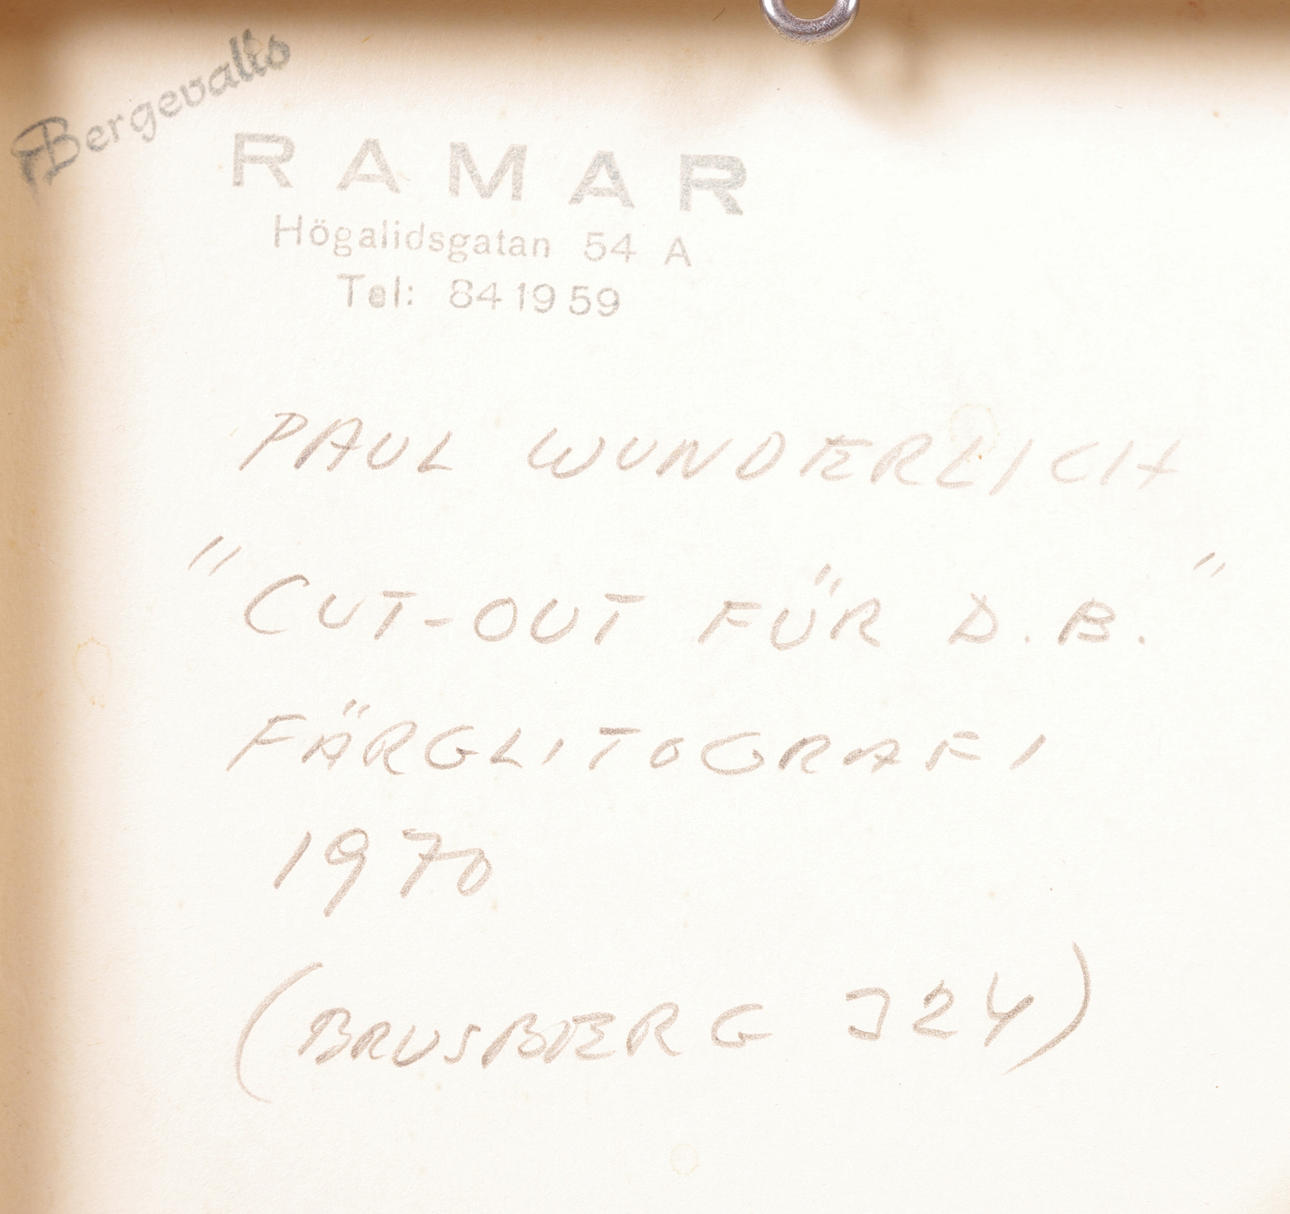 Bergevalls
RAMAR
Högalidsgatan 54 A
Tel: 84 19 59
PAUL WUNDERLICH
"CUT-OUT FÜR D. B."
FÄRGLITOGRAFI
1970
(BRUSBERG J24)